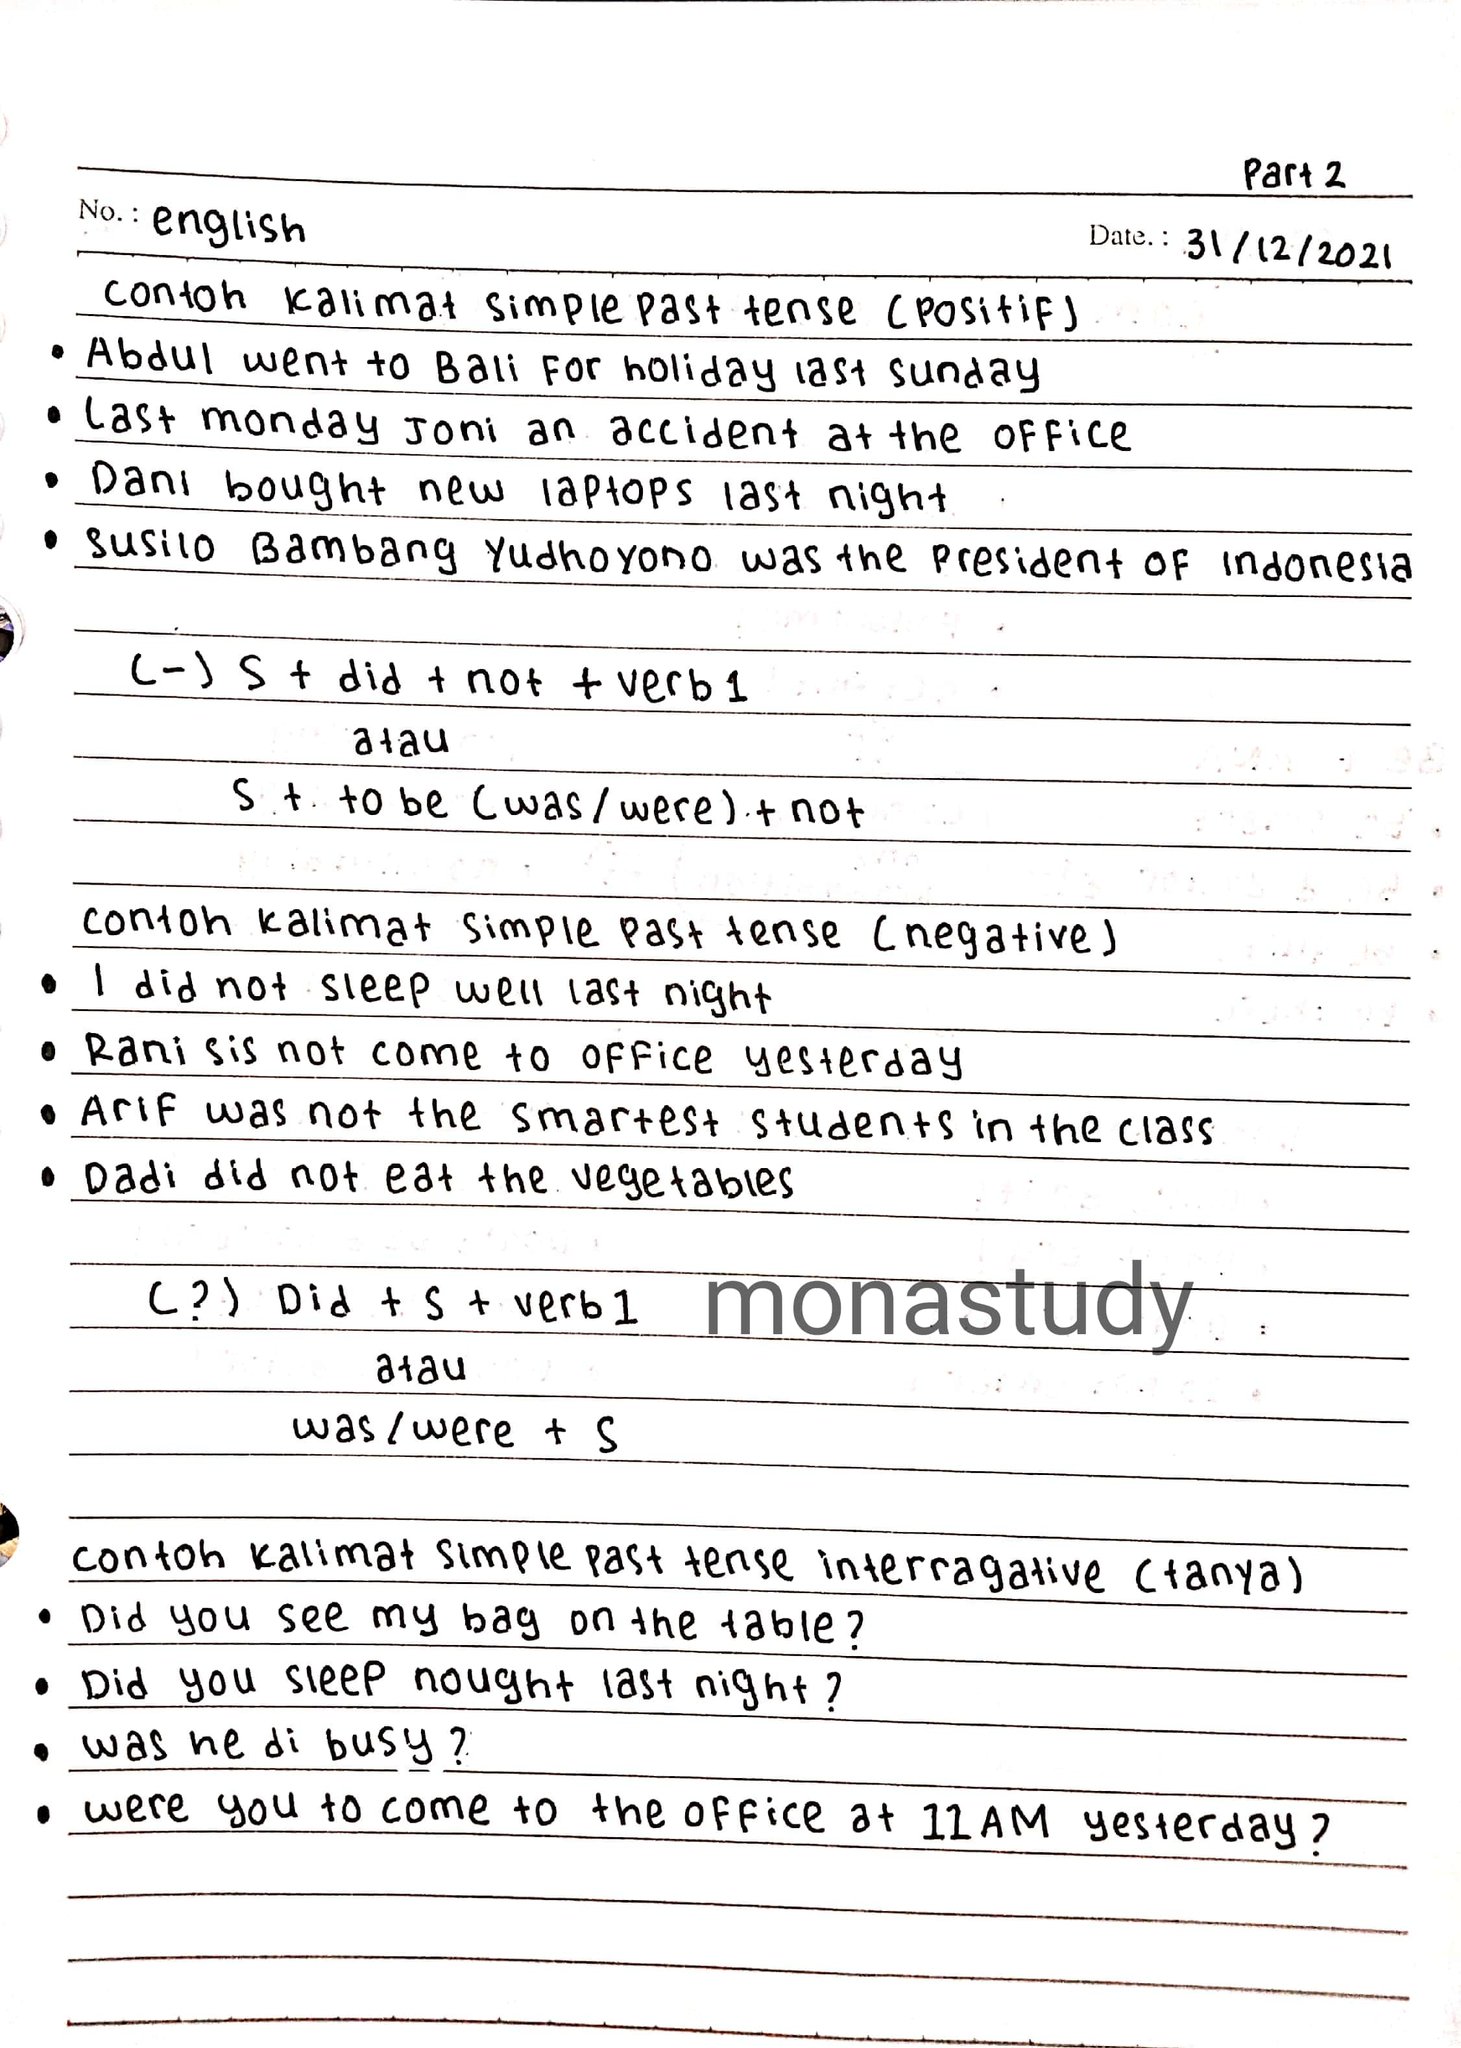 Part 2
No. : english
Date. : 31/12/2021
contoh kalimat simple past tense (positif)
• Abdul went to Bali for holiday last sunday
• Last monday Joni an accident at the office
• Dani bought new laptops last night
• Susilo Bambang Yudhoyono was the president of indonesia
(-) S + did + not + verb 1
atau
S + to be (was/were) + not
contoh kalimat simple past tense (negative)
• I did not sleep well last night
• Rani sis not come to office yesterday
• Arif was not the smartest students in the class
• Dadi did not eat the vegetables
(?) Did + S + verb 1
monastudy
atau
was/were + S
contoh kalimat simple past tense interragative (tanya)
• Did you see my bag on the table?
• Did you sleep nought last night?
• was he di busy?
• were you to come to the office at 11 AM yesterday?